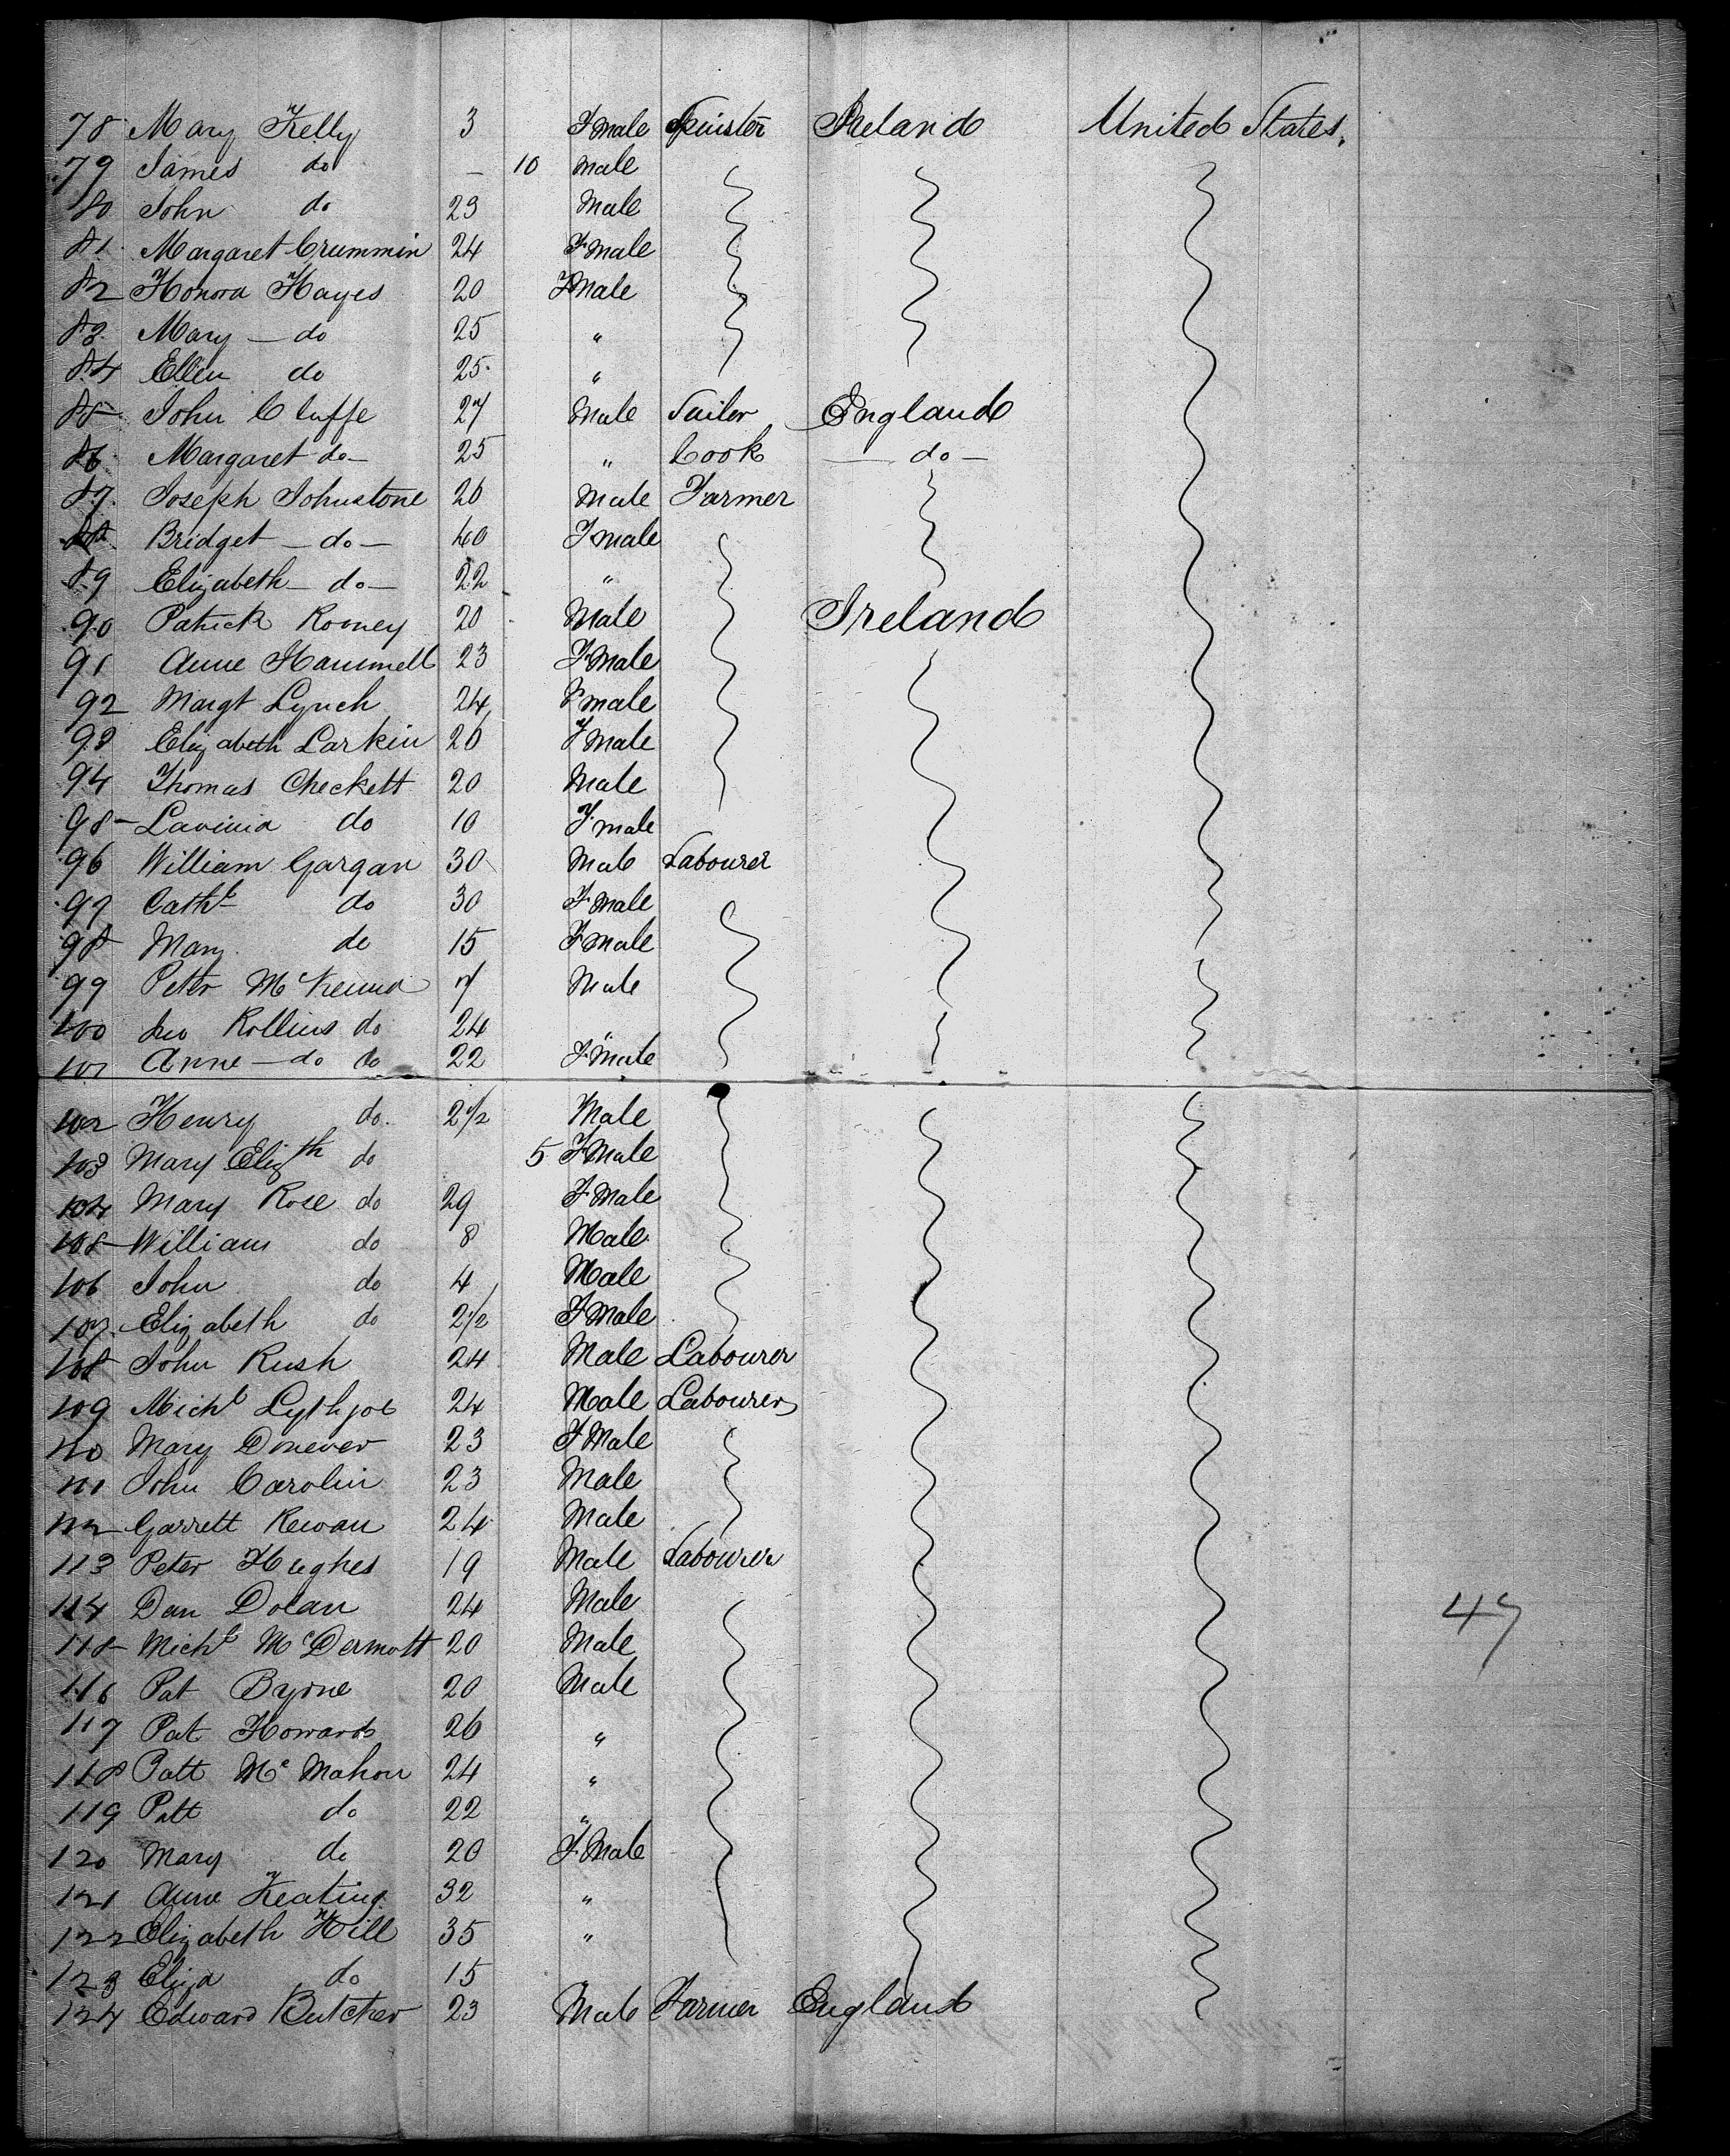 78 Mary Kelly 3 Fmale Spinster Ireland United States.
79 James do — 10 male
80 John do 23 Male
81 Margaret Crummin 24 Fmale
82 Honora Hayes 20 Fmale
83 Mary — do 25 "
84 Ellen do 25 "
85 John Cluffe 27 Male England
86 Margaret do — 25 " Cook — do —
87 Joseph Johnstone 26 Male Farmer
88 Bridget — do — 40 Fmale
89 Elizabeth — do — 22 "
90 Patrick Rooney 20 Male Ireland
91 Anne Hammell 23 Fmale
92 Margt Lynch 24 Fmale
93 Elizabeth Larkin 26 Fmale
94 Thomas Checkett 20 Male
95 Lavinia do 10 Fmale
96 William Gargan 30 Male Labourer
97 Cathe do 30 Fmale
98 Mary do 15 Fmale
99 Peter McKenna 7 Male
100 Jno Rollins do 24 "
101 Anne — do do 22 Fmale
102 Henry do. 2 1/2 Male
103 Mary Elizth do 5 Fmale
104 Mary Rose do 29 Fmale
105 William do 8 Male
106 John do 4 Male
107 Elizabeth do 2 1/2 Fmale
108 John Rush 24 Male Labourer
109 Michl 24 Male Labourer
110 Mary Donever 23 Fmale
111 John Carolin 23 Male
112 Garrett Kewan 24 Male
113 Peter Hughes 19 Male Labourer
114 Dan Dolan 24 Male
115 Michl McDermott 20 Male
116 Pat Byrne 20 Male
117 Pat Howard 26 "
118 Patt McMahon 24 "
119 Patt do 22 "
120 Mary do 20 Fmale
121 Anne Keating 32 "
122 Elizabeth Hill 35 "
123 Eliza do 15 "
124 Edward Butcher 23 Male Farmer England